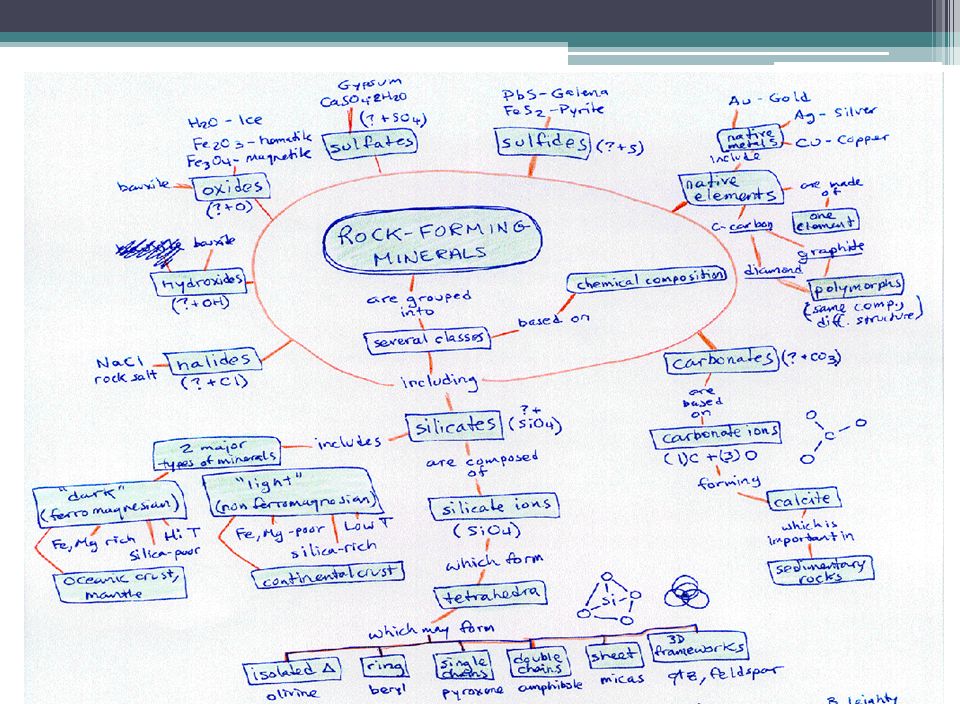 ROCK-FORMING
MINERALS
are grouped
into
several classes
based on
chemical composition
including
Gypsum
CaSO4·2H2O
(? + SO4)
sulfates
PbS - Galena
FeS2 - Pyrite
sulfides (? + S)
Au - Gold
Ag - Silver
Cu - Copper
native
metals
include
native
elements
are made
of
one
element
C-carbon
graphide
diamond
polymorphs
(same comp.,
diff. structure)
H2O - Ice
Fe2O3 - hematite
Fe3O4 - magnetite
bauxite
oxides
(? + O)
bauxite
hydroxides
(? + OH)
NaCl
rock salt
halides
(? + Cl)
carbonates (? + CO3)
are
based
on
carbonate ions
(1)C + (3)O
O
C
O
O
forming
calcite
which is
important in
sedimentary
rocks
silicates
? +
(SiO4)
includes
2 major
types of minerals
"dark"
(ferromagnesian)
Fe, Mg rich
Hi T
silica-poor
oceanic crust,
mantle
"light"
(nonferromagnesian)
Fe, Mg -poor
Low T
silica-rich
continental crust
are composed
of
silicate ions
(SiO4)
which form
tetrahedra
Si
which may form
isolated Δ
olivine
ring
beryl
single
chains
pyroxene
double
chains
amphibole
sheet
micas
3D
frameworks
qtz, feldspar